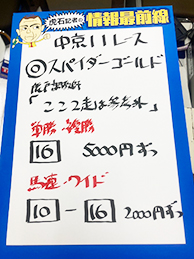 虎石記者の
情報最前線
中京11レース
◎スパイダーゴールド
「ここ2走は参考外」
単勝・複勝
16 5000円ずつ
馬連・ワイド
10－16 2000円ずつ